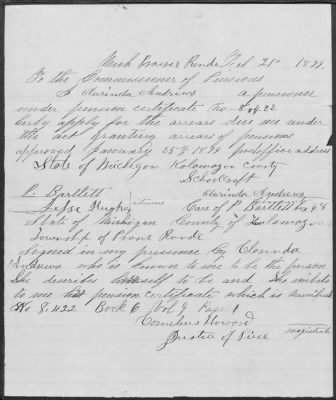 Mich Prairie Ronde Feb 21st 1879
To the Commissioner of Pensions
I Clarinda Andrews a pensioner
under pension certificate No 8422
herby apply for the arears due me under
the act granting arears of pensions
approved January 25th 1879 post office address
State of Michigan Kalamazoo County
Schoolcraft
Clarinda Andrews
P. Bartlett
Care of P. Bartlett Box 98
witness
State of Michigan County of Kalamazoo
Township of Prarie Ronde
Signed in my presence by Clarinda
Andrews who is known to me to be the person
She describes herself to be and She exibits
to me her pension certificate which is numbered
No 8,422 Book C Vol 9 Page 1
Cornelius Howard
Justice of Peace
magistrate